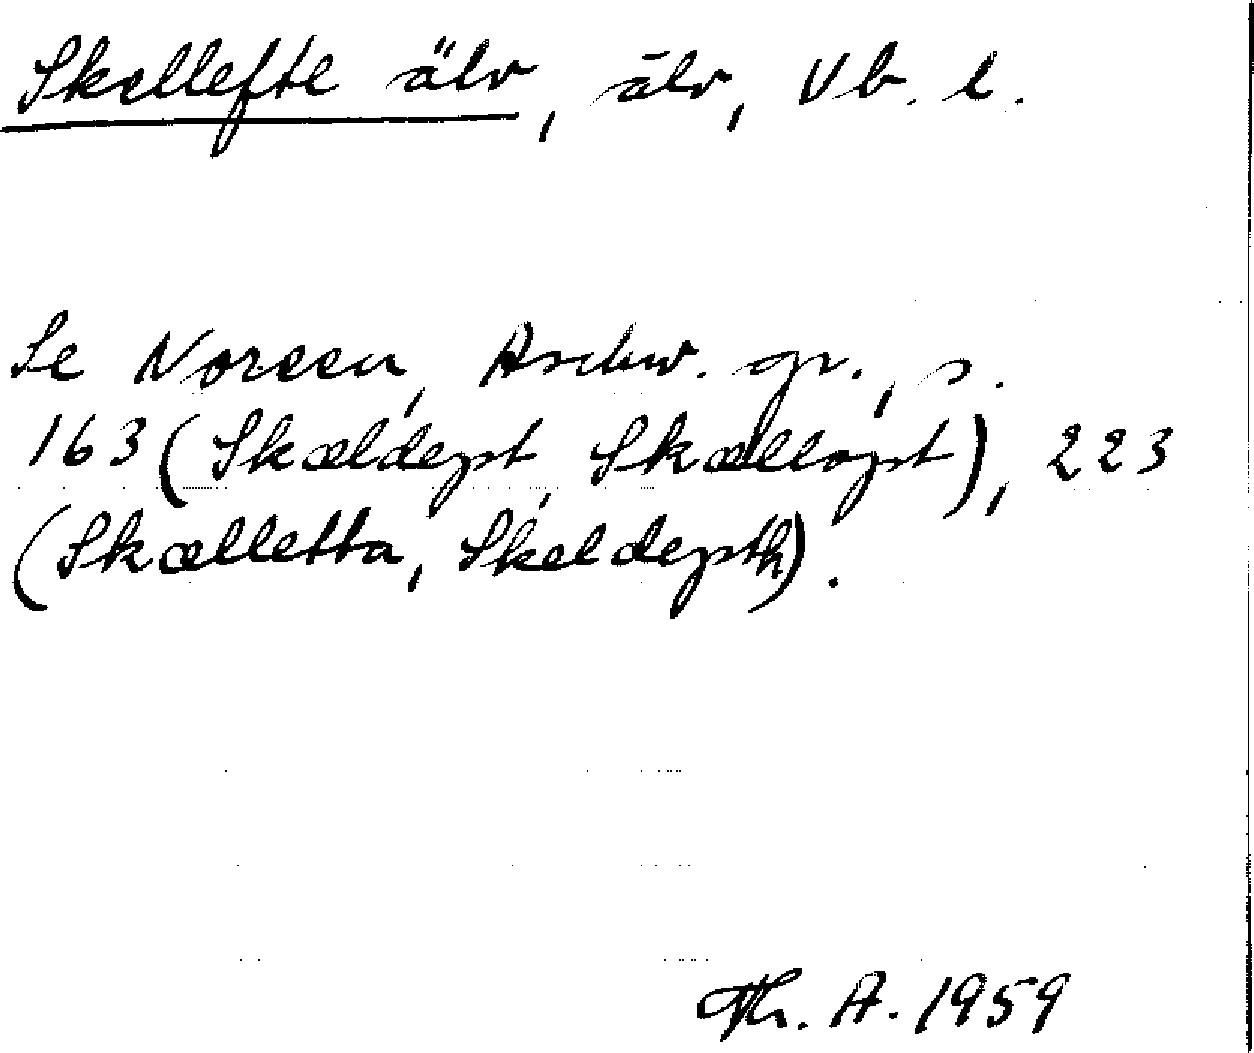 Skellefte älv, älv, Vb. l.
Se Noreen, Aschw. gr., s.
163 (Skældept, Skællopt), 223
(Skælletta, Skeldepth).
Th. A. 1959